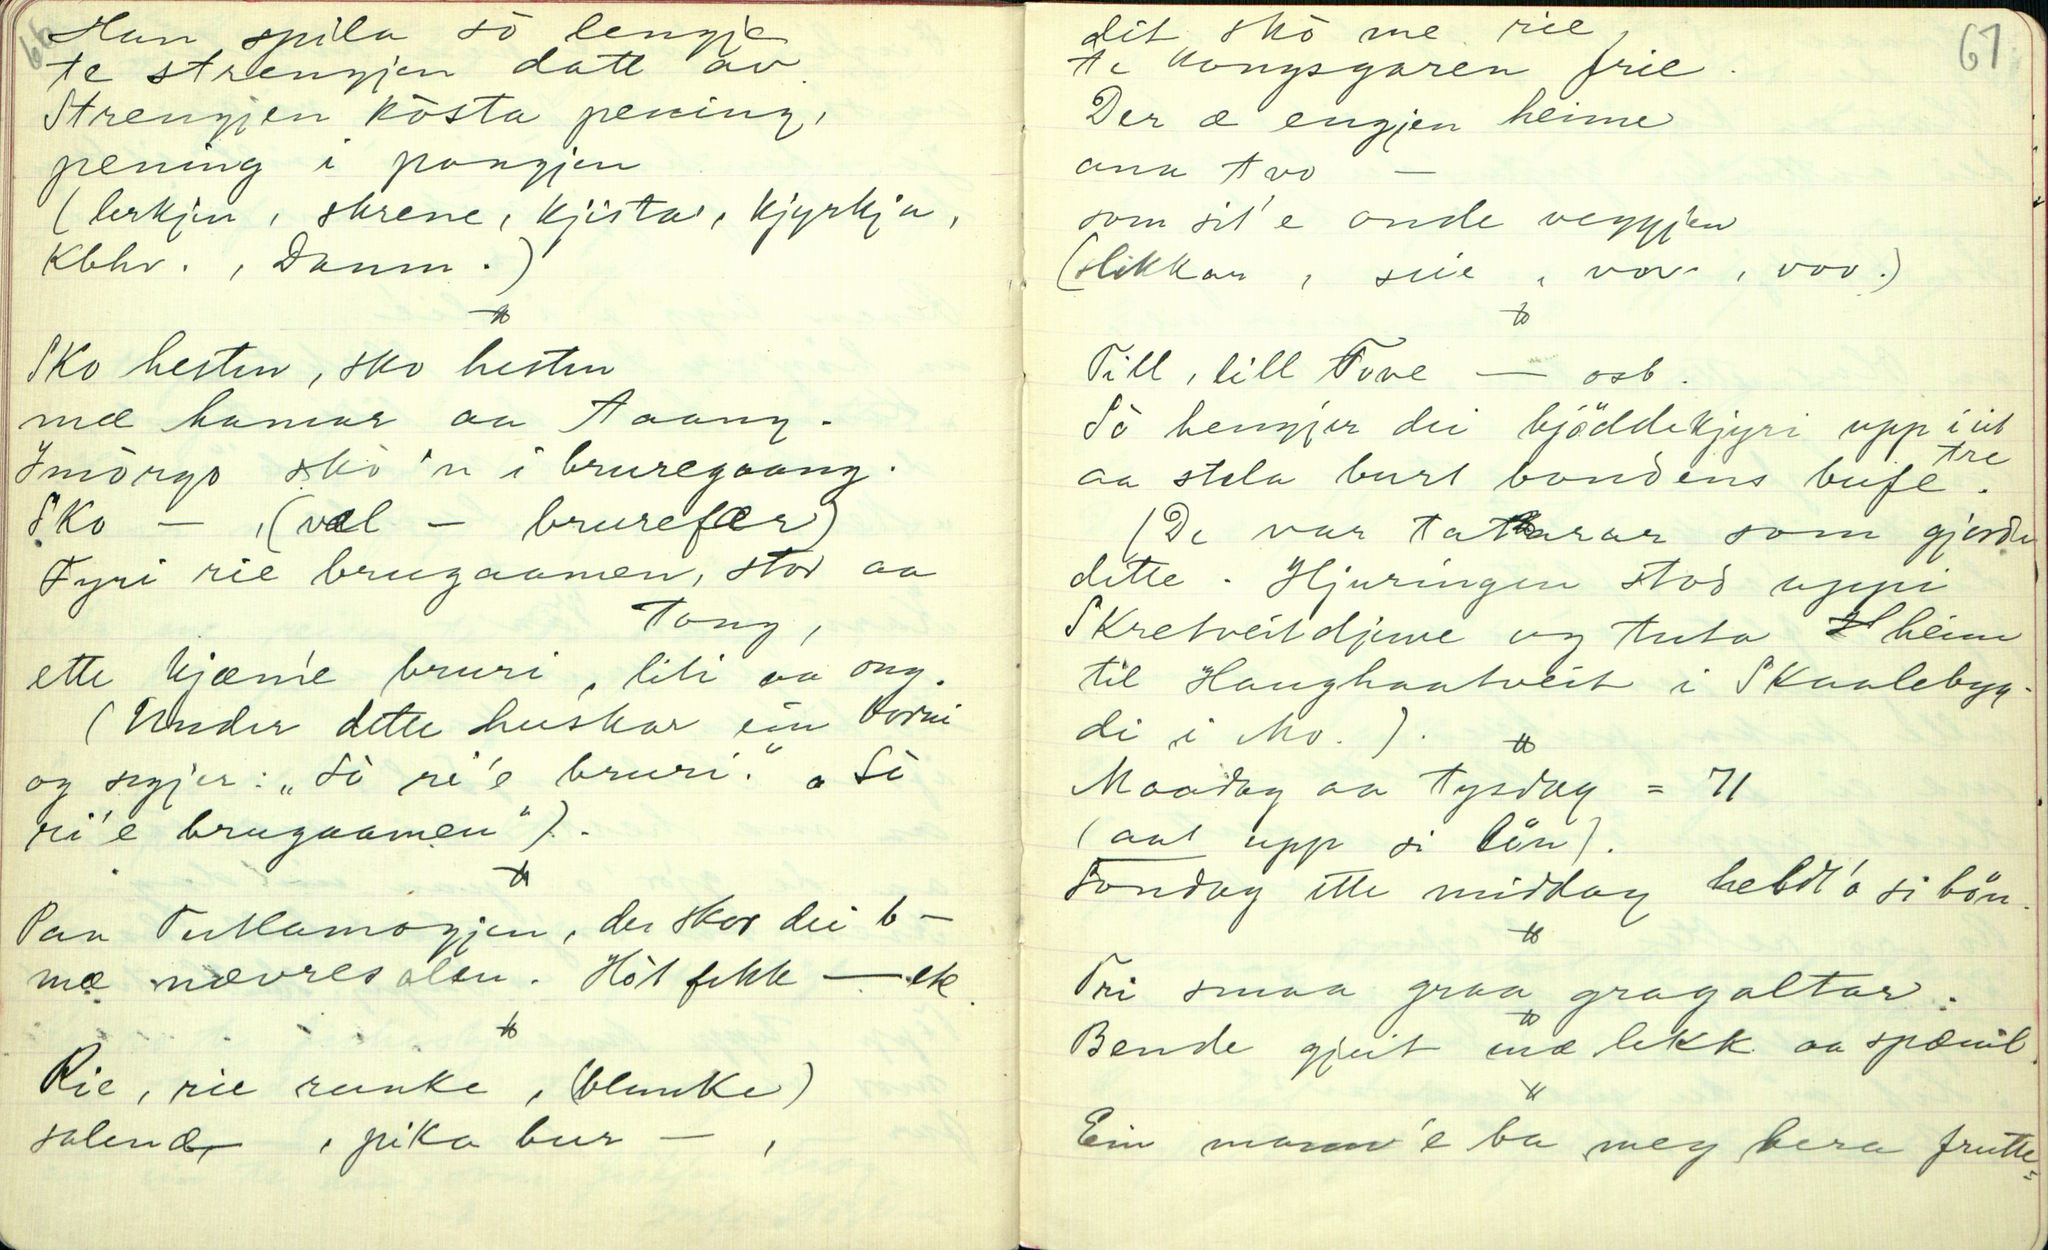 66
Han spila sò lengje
te strengjen datt av
Strengjen kòsta pening,
pening i pongjen
(lerkjen, skrene, kjista, kjyrkja,
Kbhv., Danm.)
Sko hesten, sko hesten
mæ hamar aa taang.
Imòrgo skò 'n i bruregaang.
Sko — , (væl — brurefær)
Fyri rie brugaamen, stor aa
tong,
ette kjæm'e bruri, liti aa ong.
(Under dette huskar ein borni
og segjer: „Sò ri'e bruri." „Sò
ri'e brugaamen").
Paa Tutlamogjen, der skor dei b—
mæ nævresolen. Hòt fekk — ek.
Rie, rie runke, (blunke)
salend , pika bur — ,
67
dit skò me rie,
te kongsgaren frie.
Der æ engjen heime
ana tvo —
som sit'e onde veggjen
(slikkar, sie, vov, voo.)
Till, lill Tove — osb.
Sò hengjer dei bjöddekjyri upp i eit
tre
aa stela burt bondens bufe.
(De var tatarar som gjorde
dette. Hjuringen stod uppi
Skretveitdjuve og tuta heim
til Haughaatveit i Skaalebyg-
di i Mo.).
Maadag aa tysdag = 71
(aat upp si bön).
Sondag ette middag heldt'o si bön.
Tri smaa graa gragaltar.
Bende gjeit mæ lekk aa spænil.
Ein mann'e ba meg bera frutte-